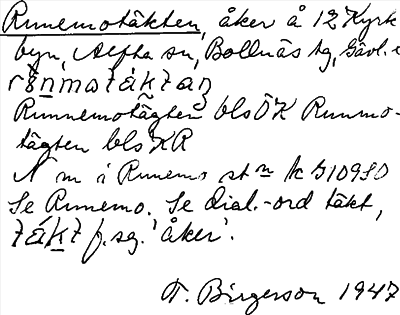 Runemotäkten, åker å 12 Kyrk
byn, Alfta sn, Bollnäs tg, Gävl. l
Runnemotägten bls ÖK Runmo-
tägten bls KR
N m i Runemo st
Se Runemo. Se dial.-ord täkt,
f. sg. 'åker'.
F. Birgerson 1947